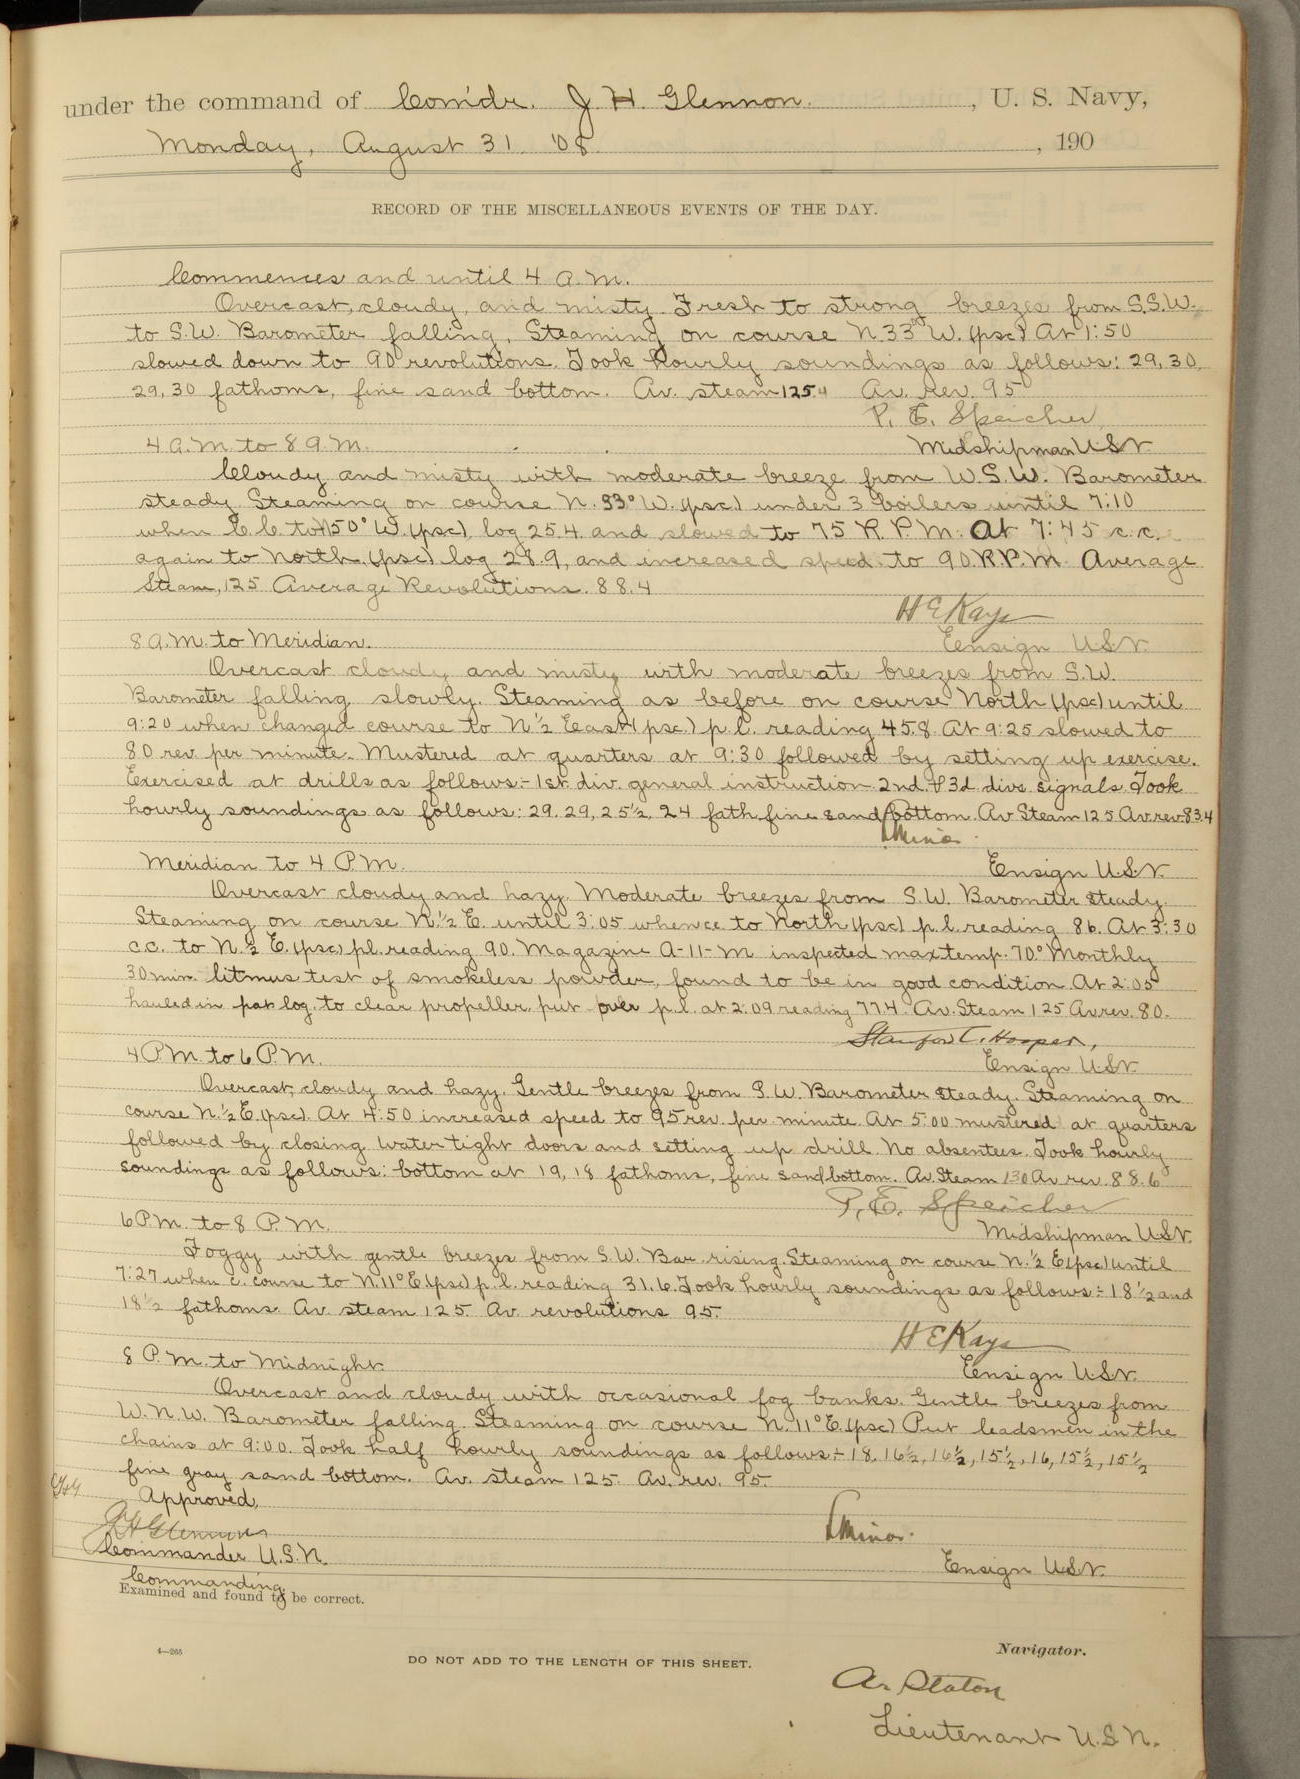 under the command of Com'dr. J. H. Glennon. , U. S. Navy,
Monday, August 31 '08 , 190
RECORD OF THE MISCELLANEOUS EVENTS OF THE DAY.
Commences and until 4 a.m.
Overcast, cloudy, and misty. Fresh to strong breezes from S.S.W.
to S.W. Barometer falling. Steaming on course N.33° W. (psc) At 1:50
slowed down to 90 revolutions. Took hourly soundings as follows: 29, 30,
29, 30 fathoms, fine sand bottom. Av. steam 125. Av. rev. 95
P. E. Speicher
4 a.m. to 8 a.m. Midshipman U.S.N.
Cloudy and misty with moderate breeze from W.S.W. Barometer
steady. Steaming on course N. 33° W. (psc) under 3 boilers until 7:10
when c.c. to N50° W. (psc) log 25.4 and slowed to 75 R.P.M. At 7:45 c.c.
again to North (psc) log 28.9, and increased speed to 90 R.P.M. Average
Steam, 125 Average Revolutions. 88.4
H E Kays
8 a.m. to Meridian. Ensign U.S.N.
Overcast cloudy and misty with moderate breezes from S.W.
Barometer falling slowly. Steaming as before on course North (psc) until
9:20 when changed course to N ½ East (psc) p.l. reading 45.8 At 9:25 slowed to
80 rev. per minute. Mustered at quarters at 9:30 followed by setting up exercise.
Exercised at drills as follows:- 1st. div. general instruction 2nd. & 3d. divs signals. Took
hourly soundings as follows: 29, 29, 25½, 24 fath. fine sand bottom. Av Steam 125 Av. rev. 83.4
Minor
Meridian to 4 P.M. Ensign U.S.N.
Overcast cloudy and hazy. Moderate breezes from S.W. Barometer steady.
Steaming on course N.½ E. until 3:05 when cc to North (psc) p.l. reading 86. At 3:30
c.c. to N.½ E. (psc) p.l. reading 90. Magazine A-11-M inspected max temp. 70° Monthly
30 min. litmus test of smokeless powder, found to be in good condition. At 2:05
hauled in pat log. to clear propeller. put over p.l. at 2:09 reading 77.4. Av. Steam 125 Av rev. 80.
Stanford C. Hooper,
4 P.M. to 6 P.M. Ensign U.S.N.
Overcast, cloudy and hazy. Gentle breezes from S.W. Barometer steady. Steaming on
course N.½ E. (psc). At 4:50 increased speed to 95 rev. per minute. At 5:00 mustered at quarters
followed by closing water tight doors and setting up drill. No absentees. Took hourly
soundings as follows: bottom at 19, 18 fathoms, fine sand bottom. Av. Steam 130 Av rev. 88.6
P. E. Speicher
6 P.M. to 8 P.M. Midshipman U.S.N.
Foggy with gentle breezes from S.W. Bar. rising. Steaming on course N.½ E (psc) until
7:27 when c. course to N.11° E (psc) p.l. reading 31.6. Took hourly soundings as follows:- 18½ and
18½ fathoms. Av. steam 125. Av. revolutions 95.
H E Kays
8 P.M. to Midnight. Ensign U.S.N.
Overcast and cloudy with occasional fog banks. Gentle breezes from
W.N.W. Barometer falling. Steaming on course N. 11° E. (psc) Put leadsmen in the
chains at 9:00. Took half hourly soundings as follows:- 18, 16½, 16½, 15½, 16, 15½, 15½
fine gray sand bottom. Av. steam 125. Av. rev. 95.
Approved,
J H Glennon Minor.
Commander U.S.N. Ensign U.S.N.
Commanding.
Examined and found to be correct.
4—265
DO NOT ADD TO THE LENGTH OF THIS SHEET.
Navigator.
Staton
Lieutenant U.S.N.